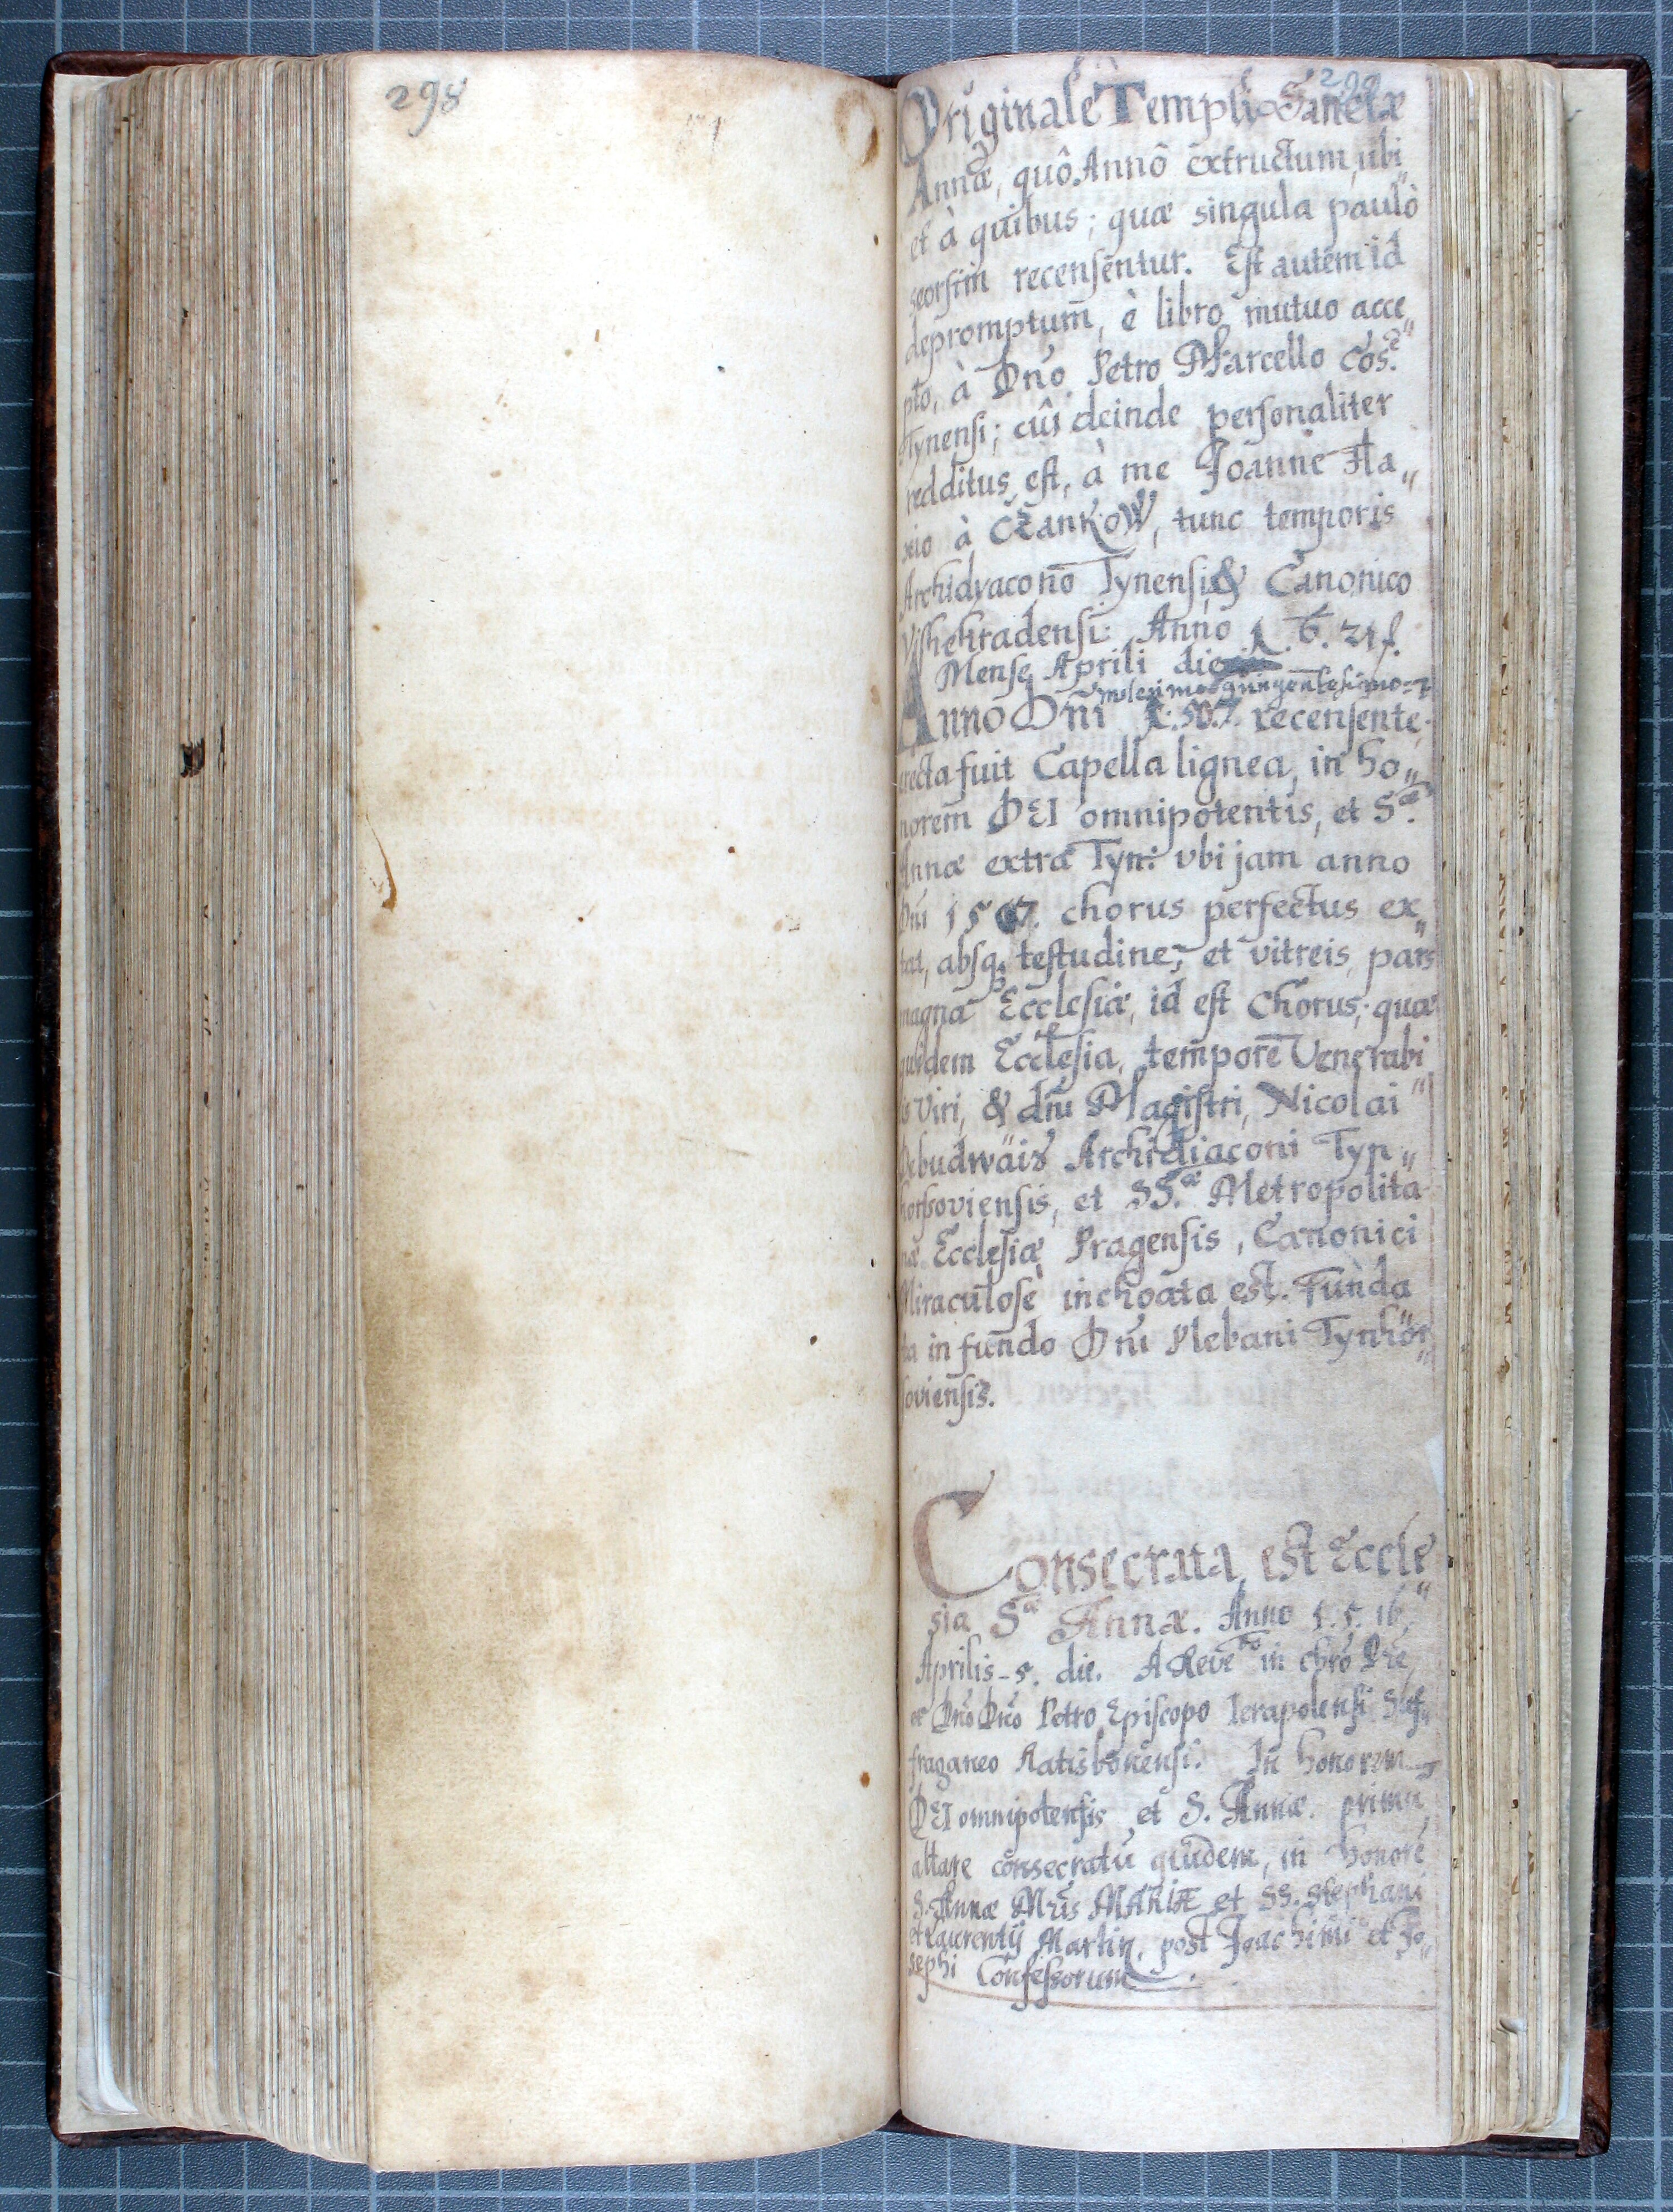 298
299
Originale Templi Sanctæ
Annæ, quô Annô extructum, ubi
et à quibus; quæ singula paulò
seorsim recensentur. Est autem id
depromptum, è libro mutuo acce„
pto, à Dno Petro Marcello
Tynensi; cûi deinde personaliter
redditus est, à me Joanne Fla„
à CžanKoW, tunc temporis
Archidyacono Tynensi & Canonico
Vishehradensi: Anno
Mense Aprili die
milesimo quingentesimo 7
Anno Dni 1.507. recensente
erecta fuit Capella lignea, in ho„
norem DEI omnipotentis, et Sæ.
Annæ extra Tyn: vbi jam anno
Dni 1507. chorus perfectus ex„
tat, absq testudine, et vitreis, pars
magna Ecclesiæ, id est Chorus; quæ
quidem Ecclesia, tempore Venerabi„
lis Viri, & dni Magistri, Nicolai
Archidiaconi Tyn„
horsoviensis, et SS.æ Metropolita
næ Ecclesiæ Pragensis, Canonici
Miraculosè inchoata est. Funda„
ta in fundo Dni Plebani Tynhor„
soviensis.
Consecrata est Eccle„
sia Sæ Annæ. Anno 1.5.16,
Aprilis 5. die. A Reve in chro Pre
et Dno Dno Petro Episcopo Ierapolensi Suf„
fraganeo Ratisbonensi. In honorem
DEI omnipotentis, et S. Annæ. primu
altare consecratu quidem, in honore
S. Annæ Mris MARIÆ et SS. Stephani
et Laurentij Martin. post Joachimi et Jo„
sephi Confessorum.